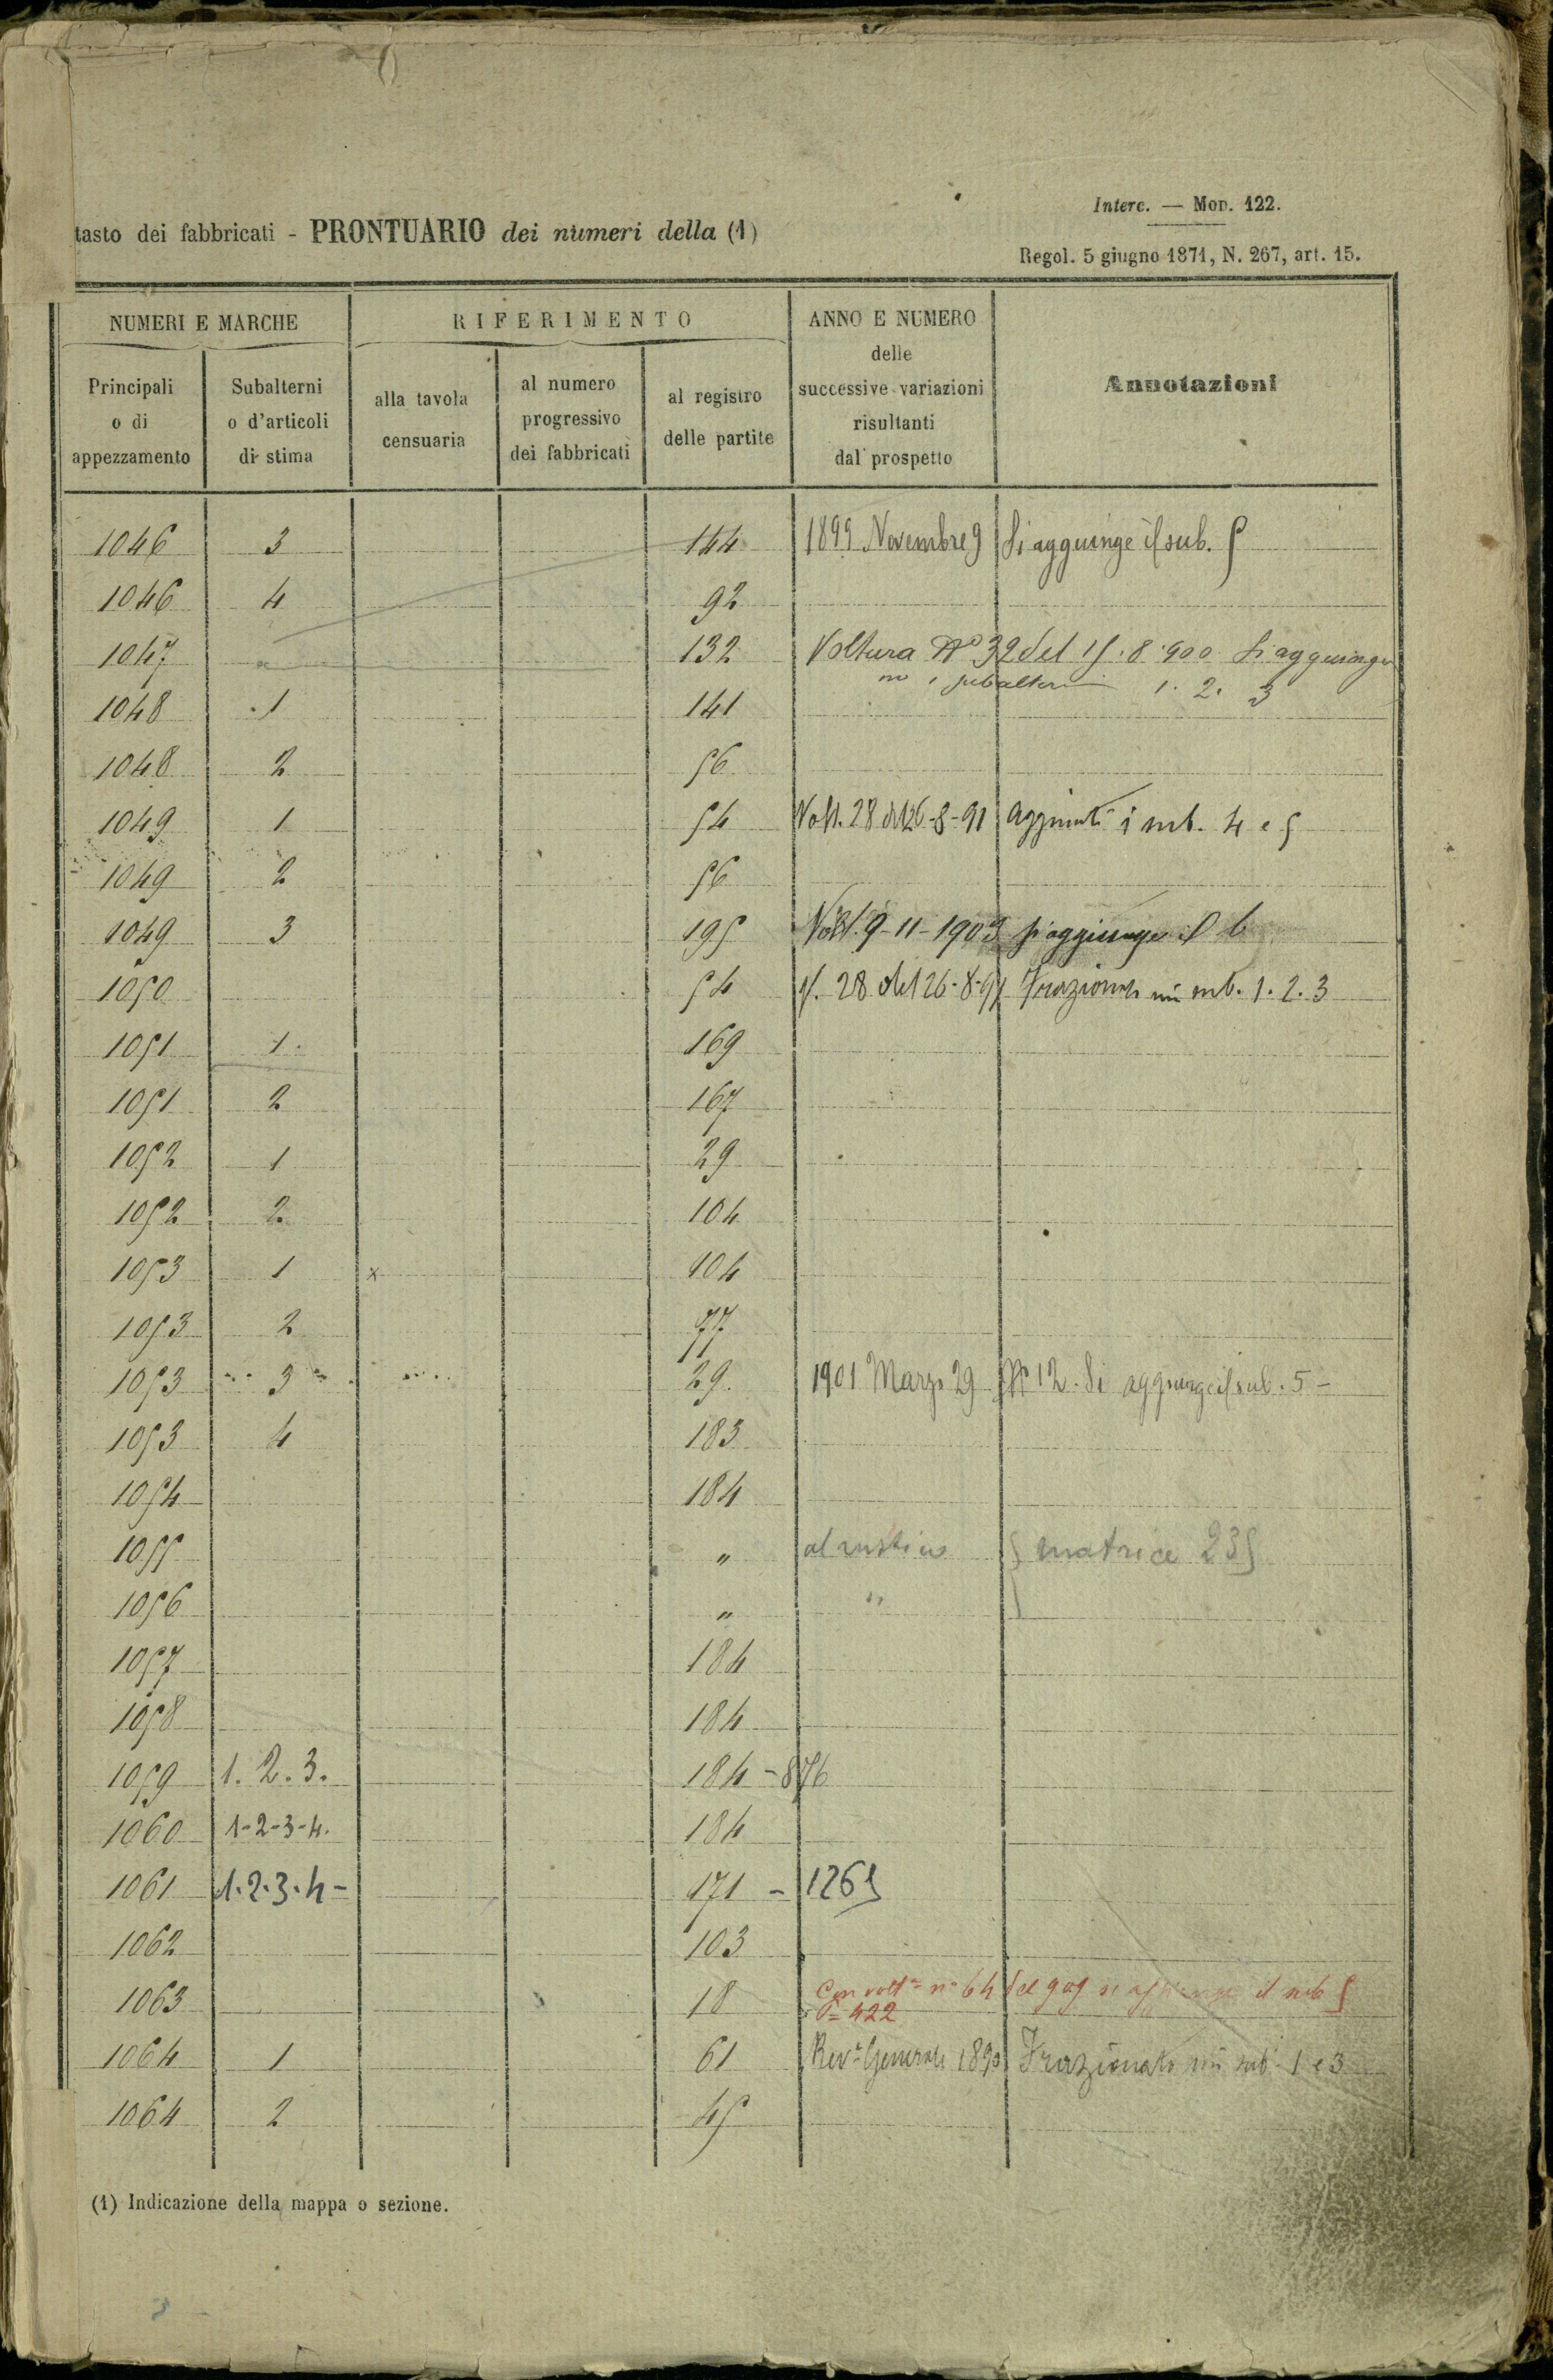 Interc. — Mod. 122.
tasto dei fabbricati - PRONTUARIO dei numeri della (1)
Regol. 5 giugno 1871, N. 267, art. 15.
NUMERI E MARCHE
RIFERIMENTO
ANNO E NUMERO delle successive variazioni risultanti dal prospetto
Annotazioni
Principali o di appezzamento
Subalterni o d'articoli di stima
alla tavola censuaria
al numero progressivo dei fabbricati
al registro delle partite
1046 3 144 1899 Novembre 9 Si aggiunge il sub. 5
1046 4 92
1047 132 Voltura N° 32 del 15.8.900 Si aggiungo
no i subalterni 1. 2. 3
1048 1 141
1048 2 56
1049 1 54 Volt. 28 del 26-8-91 Aggiunti i sub. 4 e 5
1049 2 56
1049 3 195 Volt. 9-11-1903 si aggiunge il 6
1050 54 V. 28 del 26-8-91 Frazionato nei sub. 1. 2. 3
1051 1. 169
1051 2 167
1052 1 29
1052 2 104
1053 1 x 104
1053 2 77
1053 3 29 1901 Marzo 29 N° 12. Si aggiunge il sub. 5 -
1053 4 183
1054 184
1055 " al rustico matrice 235
1056 " "
1057 184
1058 184
1059 1. 2. 3. 184 - 876
1060 1-2-3-4. 184
1061 1.2.3.4- 171 - 1265
1062 103
1063 18 Con volta n° 64 del 909 si aggiunge il sub 5
P= 422
1064 1 61 Revne Generale 1890 Frazionato nei sub 1 e 3
1064 2 45
(1) Indicazione della mappa o sezione.